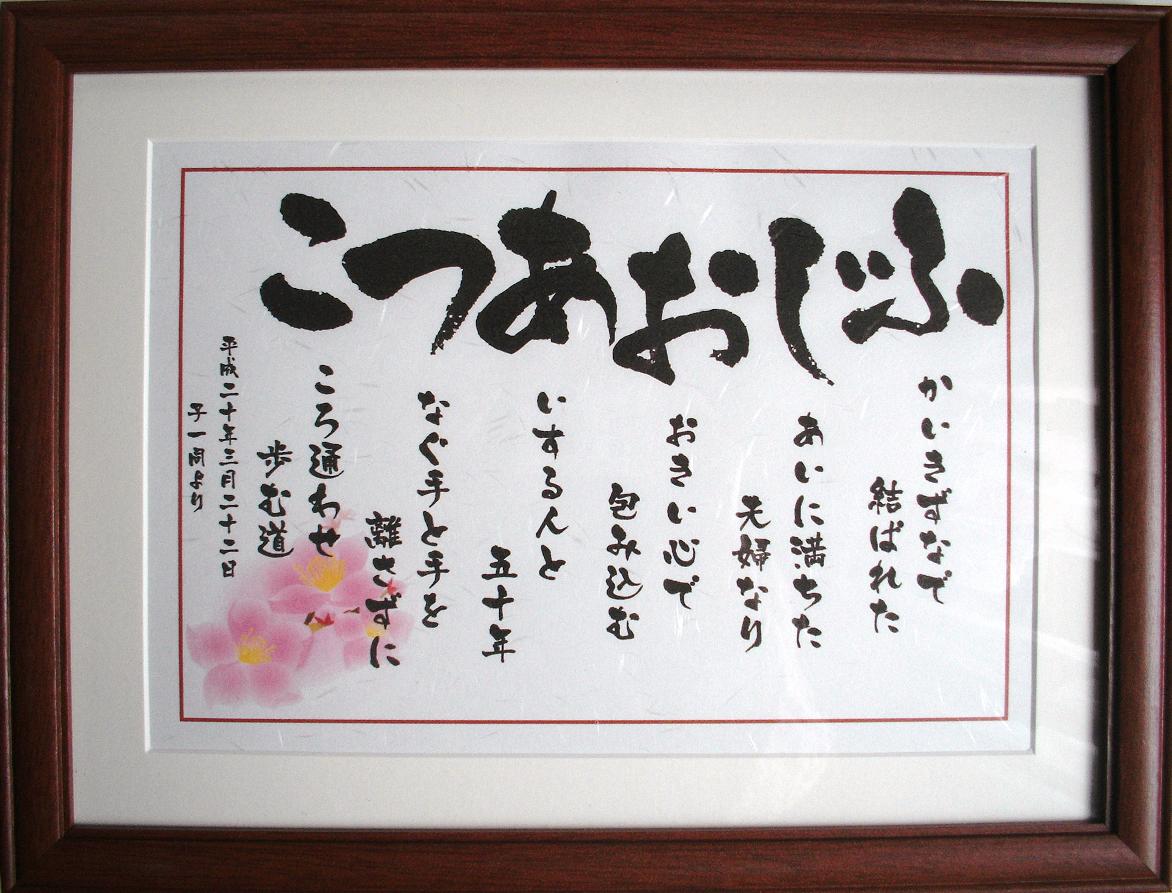 ふじおあつこ
かいきずなで
結ばれた
あいに満ちた
夫婦なり
おきい心で
包み込む
いする人と
五十年
なぐ手と手を
離さずに
ころ通わせ
歩む道
平成二十年三月二十二日
子一同より